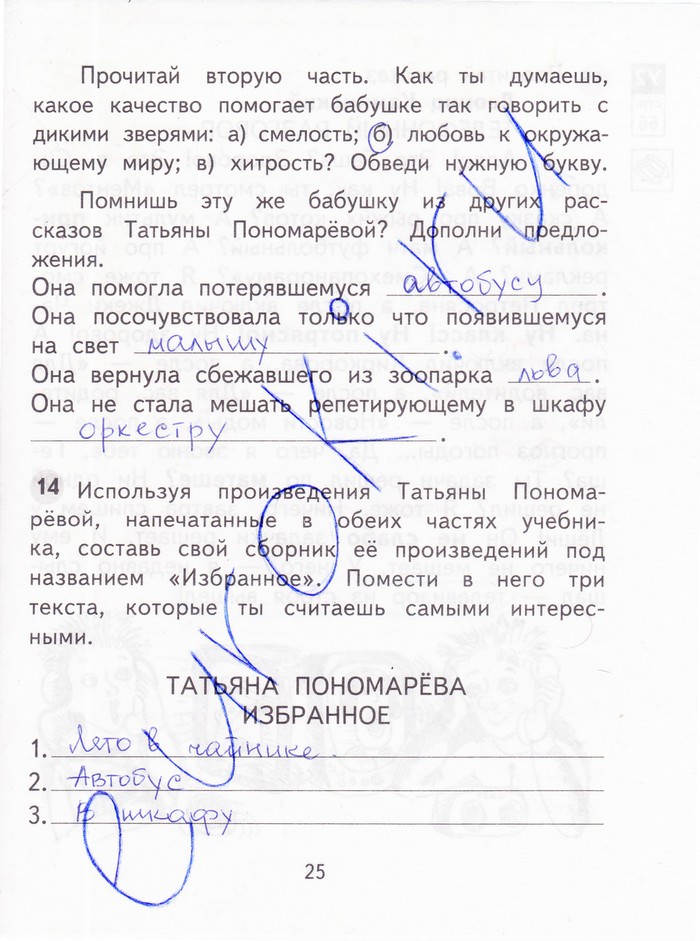 Прочитай вторую часть. Как ты думаешь,
какое качество помогает бабушке так говорить с
дикими зверями: а) смелость; б) любовь к окружа-
ющему миру; в) хитрость? Обведи нужную букву.
Помнишь эту же бабушку из других рас-
сказов Татьяны Пономарёвой? Дополни предло-
жения.
Она помогла потерявшемуся автобусу.
Она посочувствовала только что появившемуся
на свет малышу.
Она вернула сбежавшего из зоопарка льва.
Она не стала мешать репетирующему в шкафу
оркестру.
14 Используя произведения Татьяны Понома-
рёвой, напечатанные в обеих частях учебни-
ка, составь свой сборник её произведений под
названием «Избранное». Помести в него три
текста, которые ты считаешь самыми интерес-
ными.
ТАТЬЯНА ПОНОМАРЁВА
ИЗБРАННОЕ
1. Лето в чайнике.
2. Автобус
3. В шкафу
25